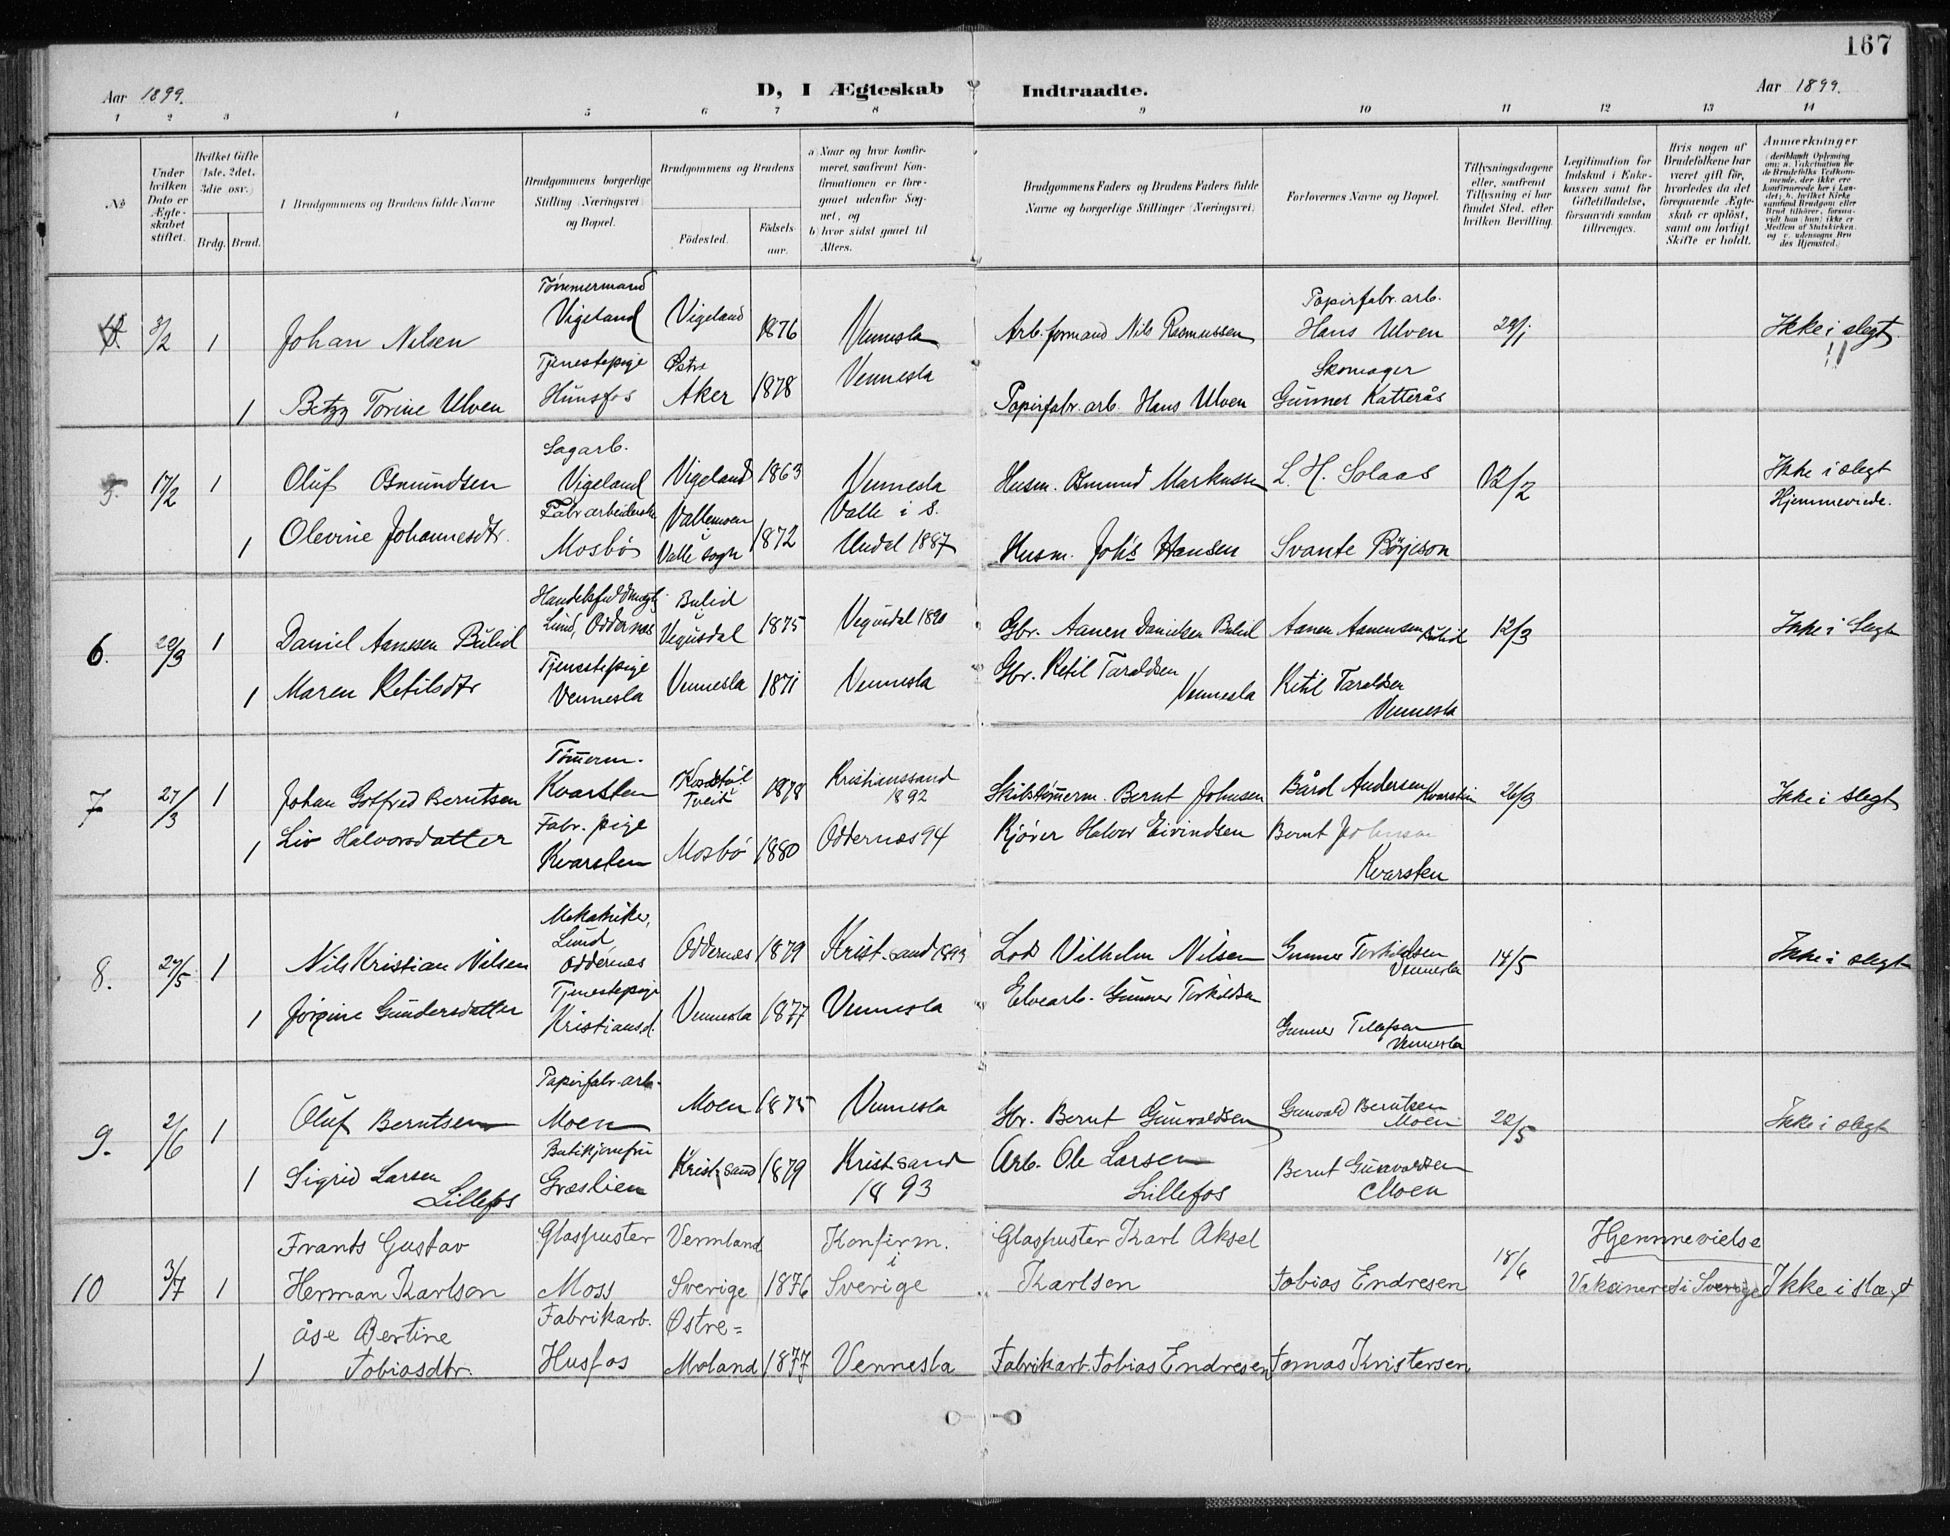 167
Aar 1899.
D, I Ægteskab Indtraadte.
Aar 1899.
1 2 3 4 5 6 7 8 9 10 11 12 13 14
No
Under hvilken Dato er Ægteskabet stiftet.
Hvilket Gifte (1ste, 2det, 3die osv.)
Brdg. Brud.
I Brudgommens og Brudens fulde Navne
Brudgommens borgerlige Stilling (Næringsvei) og Bopæl.
Brudgommens og Brudens
Fødested.
Fødselsaar.
a) Naar og hvor konfirmeret, saafremt Konfirmationen er foregaaet udenfor Sognet, og
b) hvor sidst gaaet til Alters.
Brudgommens Faders og Brudens Faders fulde Navne og borgerlige Stillinger (Næringsvei)
Forlovernes Navne og Bopæl.
Tillysningsdagene eller, saafremt Tillysning ei har fundet Sted, efter hvilken Bevilling.
Legitimation for Indskud i Enkekassen samt for Giftetilladelse, forsaavidt saadan tiltrænges.
Hvis nogen af Brudefolkene har været gift før, hvorledes da det foregaaende Ægteskab er opløst, samt om lovligt Skifte er holdt.
Anmærkninger
(deriblandt Oplysning om: a. Vakcination for de Brudefolks Vedkommende, der ikke ere konfirmerede her i Landet; b. hvilket Kirkesamfund Brudgom eller Brud tilhører, forsaavidt han (hun) ikke er Medlem af Statskirken, og c. udensogns Brudes Hjemsted.
3/2 1 Johan Nilsen Tømmermand Vigeland Vigeland 1876 Vennesla Arb.formand Nils Rasmussen Papirfabr. arb. Hans Ulven 29/1 Ikke i slegt
1 Betzy Torine Ulven Tjenestepige Hunsfos Østre Aker 1878 Vennesla Papirfabr. arb. Hans Ulven Skomager Gunner Katterås
5. 17/2 1 Oluf Osmundsen Sagarb. Vigeland Vigeland 1863 Vennesla Husm. Osmund Markussen L. H. Solaas 12/2 Ikke i slegt Hjemmeviede.
1 Olevine Johannesdtr. Fabrarbeiderske Mosbø Vallemoen i Valle sogn 1872 Valle i S. Undal 1887 Husm. Johs Hansen Svante Börjeson
6. 20/3 1 Daniel Aanesen Bulid Handelsfuldmægtig Lund, Oddernæs Bulid i Vegusdal 1875 Vegusdal 1890 Gbr. Aanen Danielsen Bulid Aanen Aanensen Bulid 12/3 Ikke i Slegt
1 Maren Ketilsdtr Tjenestepige Vennesla Vennesla 1871 Vennesla Gbr. Ketil Taraldsen Vennesla Ketil Taraldsen Vennesla
7 27/3 1 Johan Gotfred Berntsen Tømerm. Kvarsten Tveit 1878 Kristianssand 1892 Skibstømerm. Bernt Johnsen Bård Andersen Kvarstein 26/3 Ikke i slegt
1 Liv Halvorsdatter Fabr. pige Kvarsten Mosbø 1880 Oddernæs 94 Kjører Halvor Eivindsen Bernt Johnsen Kvarsten
8. 27/5 1 Nils Kristian Nilsen Mekaniker, Lund, Oddernæs Oddernæs 1879 Krist.sand 1893 Lods Vilhelm Nilsen Gunner Torkildsen Vennesla 14/5 Ikke i slegt
1 Jørgine Gundersdatter Tjenestepige Kristiansd. Vennesla 1877 Vennesla Elvearb. Gunner Torkildsen Gunner Tellefsen Vennesla
9. 2/6 1 Oluf Berntsen Papirfabr. arb. Moen Moen 1875 Vennesla Gbr. Bernt Gunvaldsen Gunvald Berntsen Moen 22/5 Ikke i slegt
1 Sigrid Larsen Lillefos Butikjomfru Græslien Kristsand 1879 Kristsand 1893 Arb. Ole Larsen Lillefos Bernt Gunvaldsen Moen
10 3/7 1 Frants Gustav Herman Karlson Glaspuster Moss Vermland Sverige 1876 Konfirm. i Sverige Glaspuster Karl Aksel Karlson Tobias Endresen 18/6 Hjemmevielse Vaksineret i Sverige Ikke i slægt
1 Åse Bertine Tobiasdtr. Fabrikarb. Husfos Østre= Moland 1877 Vennesla Fabrikarb. Tobias Endresen Tomas Kristersen